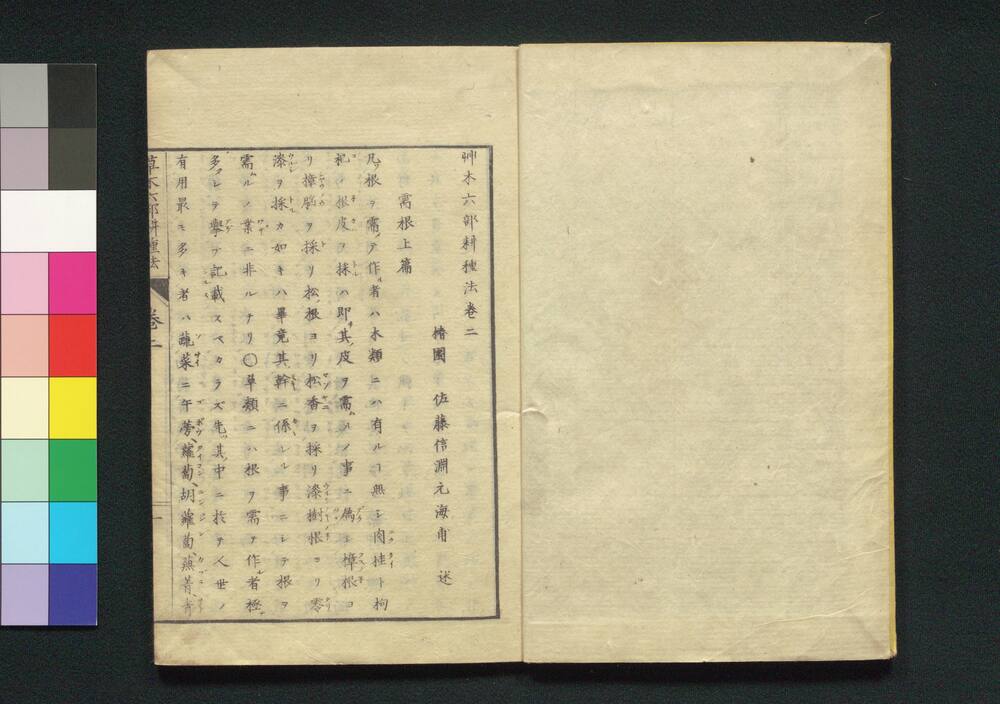 艸木六部耕種法卷二
椿園 佐藤信淵元海甫 述
需根上篇
凡ソ根ヲ需テ作ル者ハ木類ニハ有ルコ無シ肉桂ト枸
杞ノ根皮ヲ採ハ即其皮ヲ需ムルノ事ニ属シ樟根ヨ
リ樟腦ヲ採リ松根ヨリ松香ヲ採リ漆樹根ヨリ零
漆ヲ採カ如キハ畢竟其幹ニ係レル事ニシテ根ヲ
需ムルノ業ニ非ルナリ〇草類ニハ根ヲ需テ作ル者極
多クレヲ擧テ記載スベカラズ先其中ニ於テ人世ノ
有用最モ多キ者ハ蔬菜ニ牛蒡、蘿蔔、胡蘿蔔、蕪菁、
草木六部耕種法 卷二 一